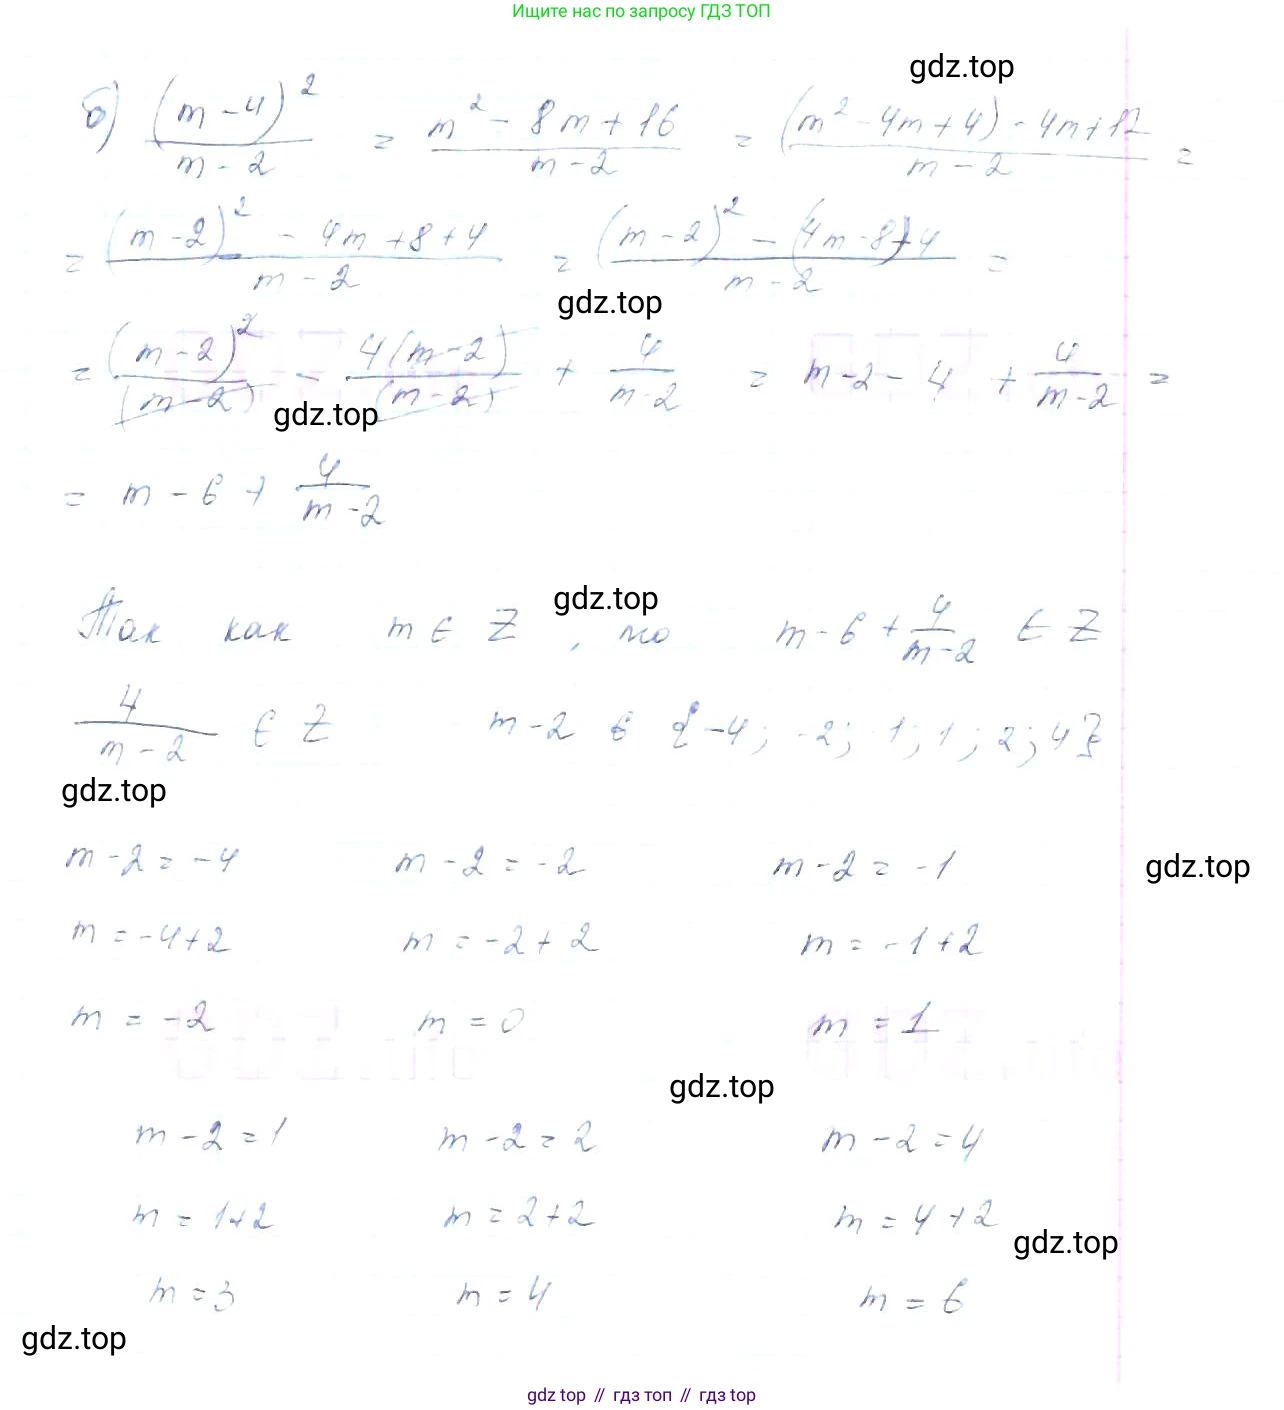 Ищите нас по запросу ГДЗ ТОП
gdz.top
б) (m-4)²/(m-2) = (m²-8m+16)/(m-2) = ((m²-4m+4)-4m+12)/(m-2) =
= ((m-2)²-4m+8+4)/(m-2) = ((m-2)²-(4m-8)+4)/(m-2) =
gdz.top
= (m-2)²/(m-2) - 4(m-2)/(m-2) + 4/(m-2) = m-2-4 + 4/(m-2) =
gdz.top
= m-6+ 4/(m-2)
gdz.top
Так как m ∈ Z, то m-6+ 4/(m-2) ∈ Z
4/(m-2) ∈ Z m-2 ∈ {-4; -2; -1; 1; 2; 4}
gdz.top
m-2=-4 m-2=-2 m-2=-1
gdz.top
m=-4+2 m=-2+2 m=-1+2
m=-2 m=0 m=1
gdz.top
m-2=1 m-2=2 m-2=4
m=1+2 m=2+2 m=4+2
gdz.top
m=3 m=4 m=6
gdz.top
gdz top // гдз топ // гдз top